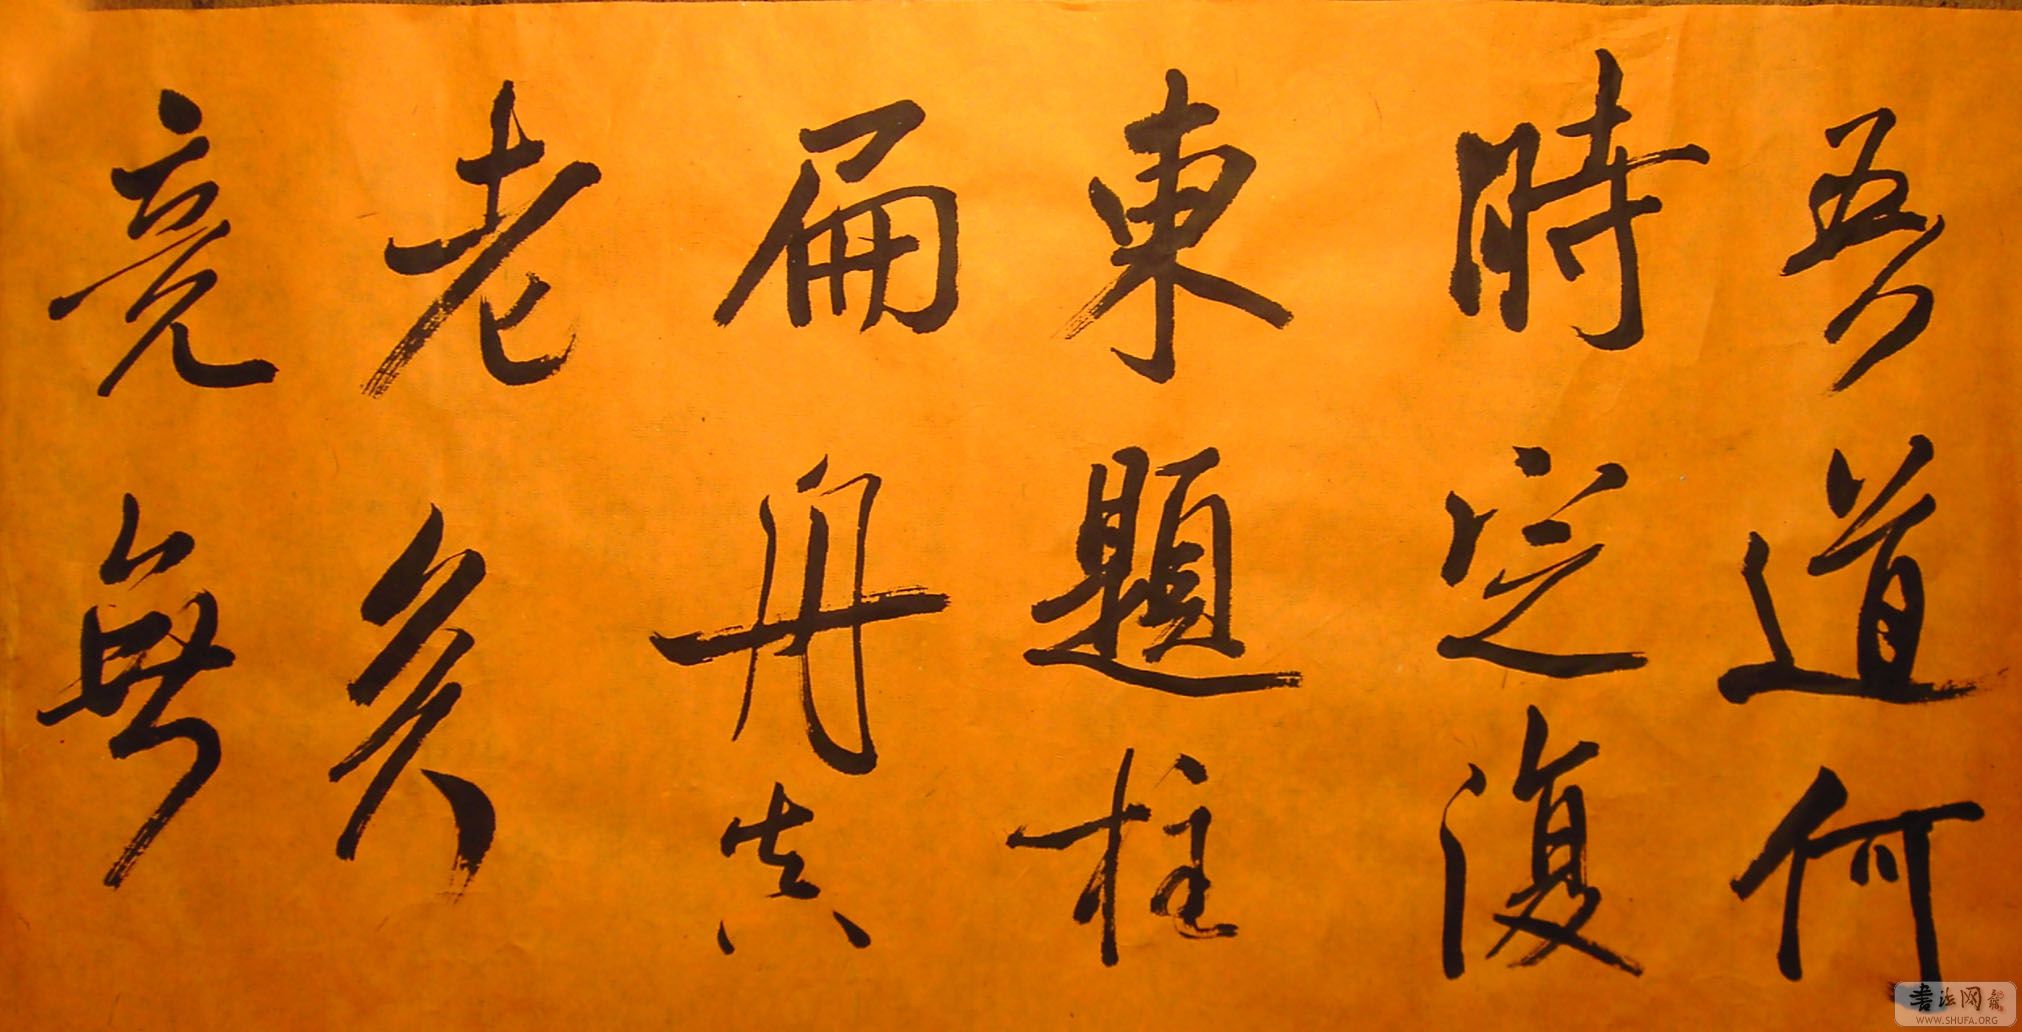 吾道何
時定復
東題柱
扁舟真
老矣
竟無
書法网
WWW.SHUFA.ORG